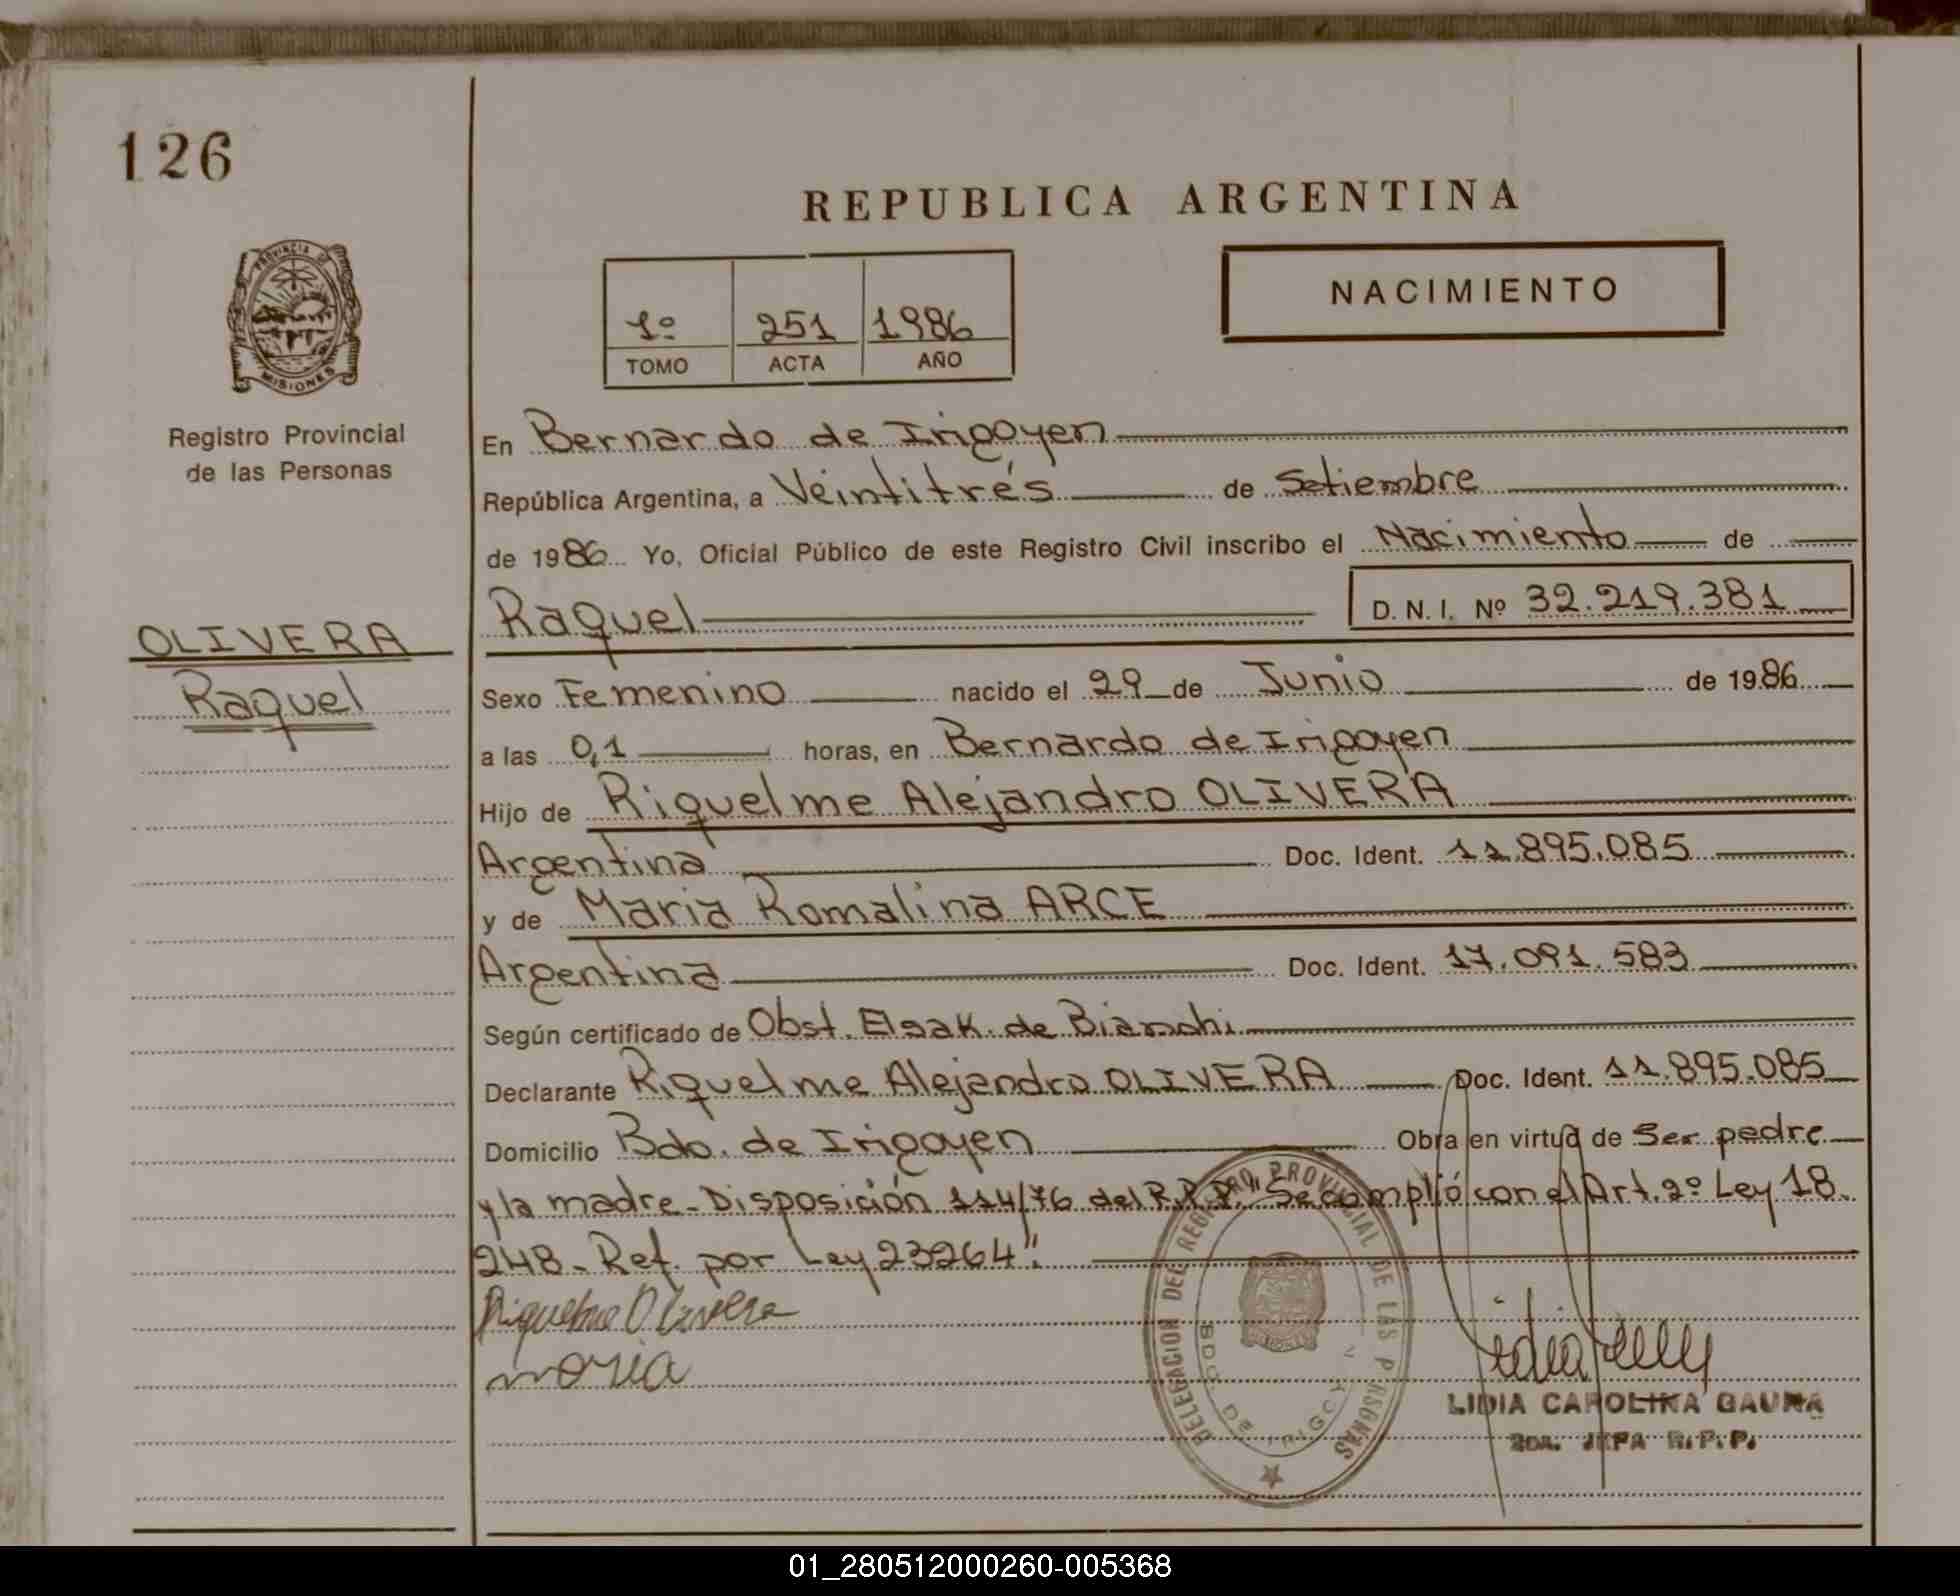 126
REPUBLICA ARGENTINA
PROVINCIA DE MISIONES
1º 251 1986
TOMO ACTA AÑO
NACIMIENTO
Registro Provincial
de las Personas
OLIVERA
Raquel
En Bernardo de Irigoyen
República Argentina, a Veintitrés de Setiembre
de 1986 Yo, Oficial Público de este Registro Civil inscribo el Nacimiento de
Raquel D. N. I. Nº 32.219.381
Sexo Femenino nacido el 29 de Junio de 1986
a las 0,1 horas, en Bernardo de Irigoyen
Hijo de Riquelme Alejandro OLIVERA
Argentina Doc. Ident. 11.895.085
y de Maria Romalina ARCE
Argentina Doc. Ident. 17.091.583
Según certificado de Obst. Elsa K. de Bianchi
Declarante Riquelme Alejandro OLIVERA Doc. Ident. 11.895.085
Domicilio Bdo. de Irigoyen Obra en virtud de Ser padre
y la madre - Disposición 114/76 del R.P.P. "Se complió con el Art. 2º Ley 18.
248 - Ref. por Ley 23264".
Riquelme Olivera
maria
DELEGACION DEL REGISTRO PROVINCIAL DE LAS PERSONAS
BDO. DE IRIGOYEN
LIDIA CAROLINA GAUNA
2DA. JEFA R.P.P.
01_280512000260-005368